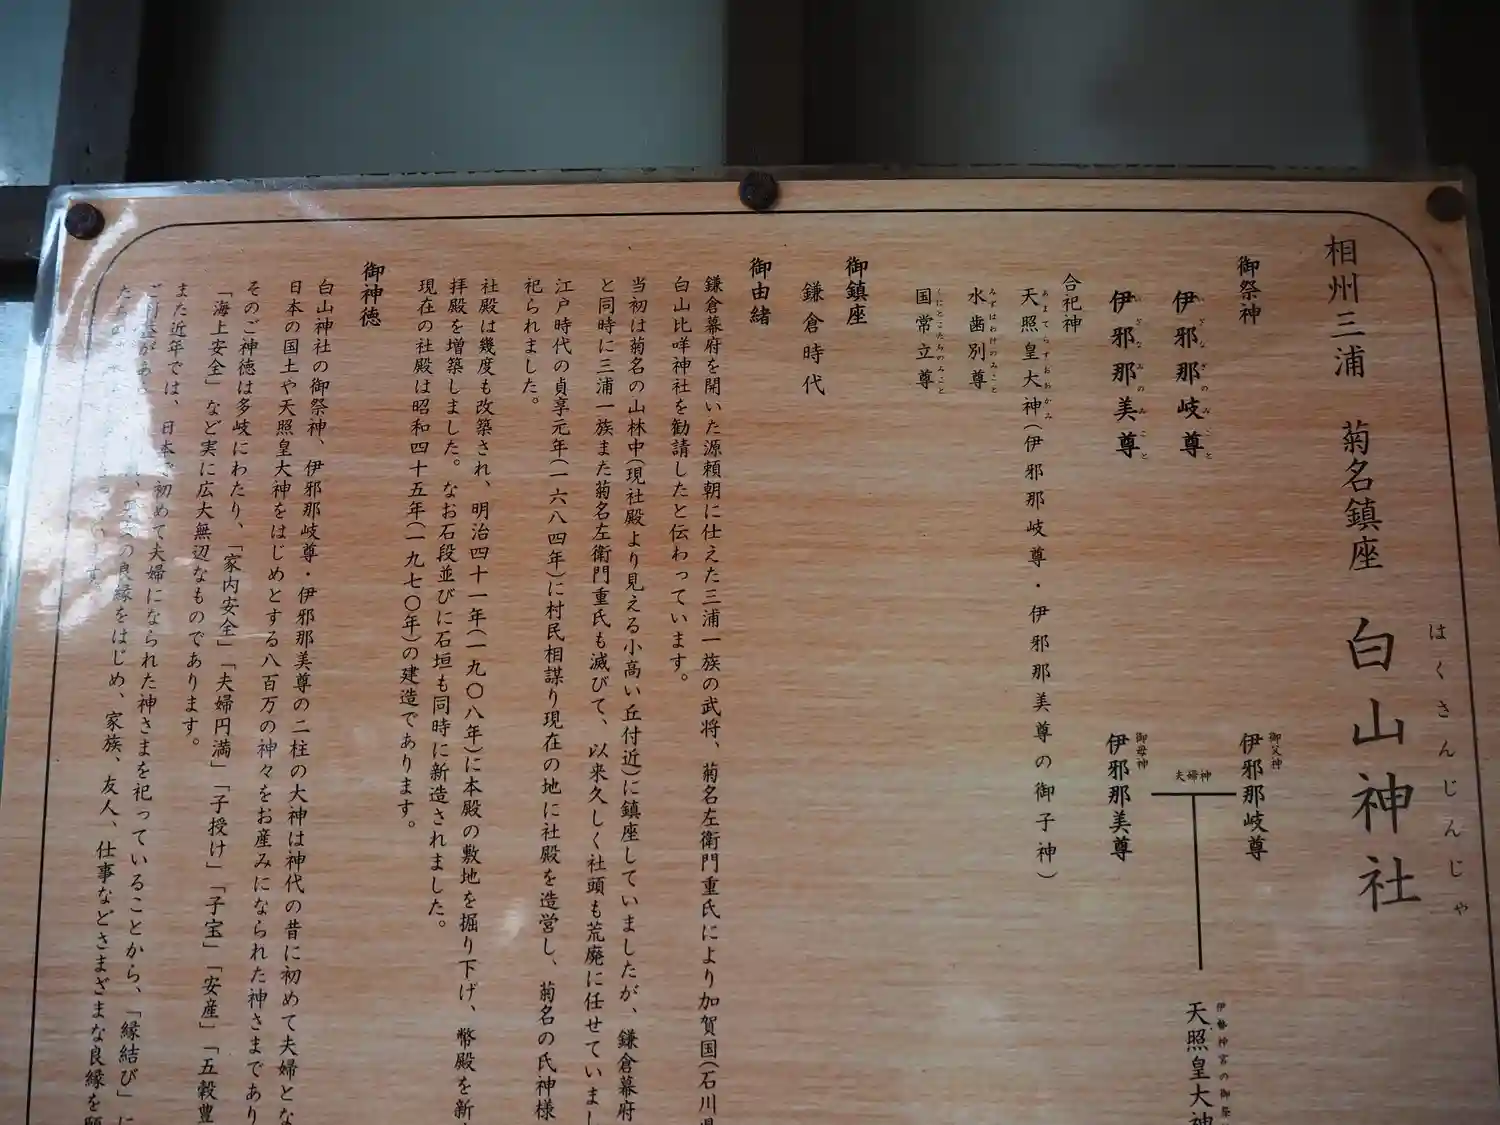 相州三浦　菊名鎮座　白山神社
はくさんじんじゃ
御祭神
伊邪那岐尊
いざなぎのみこと
伊邪那美尊
いざなみのみこと
御父神
伊邪那岐尊
夫婦神
御母神
伊邪那美尊
伊勢神宮の御祭
天照皇大神
合祀神
天照皇大神(伊邪那岐尊・伊邪那美尊の御子神)
あまてらすおおかみ
水歯別尊
みずはわけのみこと
国常立尊
くにとこたちのみこと
御鎮座
鎌倉時代
御由緒
鎌倉幕府を開いた源頼朝に仕えた三浦一族の武将、菊名左衛門重氏により加賀国(石川県
白山比咩神社を勧請したと伝わっています。
当初は菊名の山林中(現社殿より見える小高い丘付近)に鎮座していましたが、鎌倉幕府
と同時に三浦一族また菊名左衛門重氏も滅びて、以来久しく社頭も荒廃に任せていまし
江戸時代の貞享元年(一六八四年)に村民相謀り現在の地に社殿を造営し、菊名の氏神様
祀られました。
社殿は幾度も改築され、明治四十一年(一九〇八年)に本殿の敷地を掘り下げ、幣殿を新
拝殿を増築しました。なお石段並びに石垣も同時に新造されました。
現在の社殿は昭和四十五年(一九七〇年)の建造であります。
御神徳
白山神社の御祭神、伊邪那岐尊・伊邪那美尊の二柱の大神は神代の昔に初めて夫婦とな
日本の国土や天照皇大神をはじめとする八百万の神々をお産みになられた神さまであり
そのご神徳は多岐にわたり、「家内安全」「夫婦円満」「子授け」「子宝」「安産」「五穀豊
「海上安全」など実に広大無辺なものであります。
また近年では、日本で初めて夫婦になられた神さまを祀っていることから、「縁結び」に
の良縁をはじめ、家族、友人、仕事などさまざまな良縁を願
す。